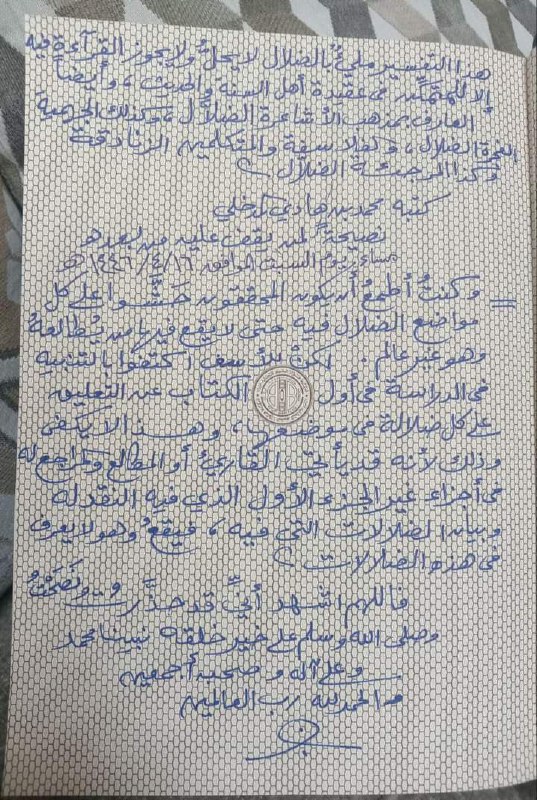 هذا التفسير مليءٌ بالضلال لا يحل ولا يجوز القرآءة فيه
إلا للمتمكن في عقيدة أهل السنة والحديث ، وأيضاً
العارف بمذهب الأشاعرة الضلال ، وكذلك الجهمية
الفجرة الضلال ، والفلاسفة والمتكلمين الزنادقة
وكذا المرجئة الضلال ؟
كتبه محمد بن هادي المدخلي
نصيحةً لمن يقف عليه من بعده
مساء يوم السبت الموافق ١٤٤٦/٤/١٦ هـ
= وكنتُ أطمعُ أن يكون المحققون حَشَّوا على كل
مواضع الضلال فيه حتى لا يقع فيها من يُطالعهُ
وهو غير عالم . لكنْ للأسف اكتفوا بالتنبيه
في الدراسة في أول الكتاب عن التعليق
على كل ضلالة في موضعها ، وهذا لا يكفي
وذلك لأنه قد يأتي القارئ أو المطالع والمراجع له
في أجزاء غير الجزء الأول الذي فيه النقد له
وبيان الضلالات التي فيه ، فيقعُ وهو لا يعرف
في هذه الضلالات ؟
فاللهم اشهد أنِّي قد حذَّرت ونصَحْتُ
وصلى الله وسلم على خير خلقه نبينا محمد
وعلى آله وصحبه أجمعين
والحمد لله رب العالمين